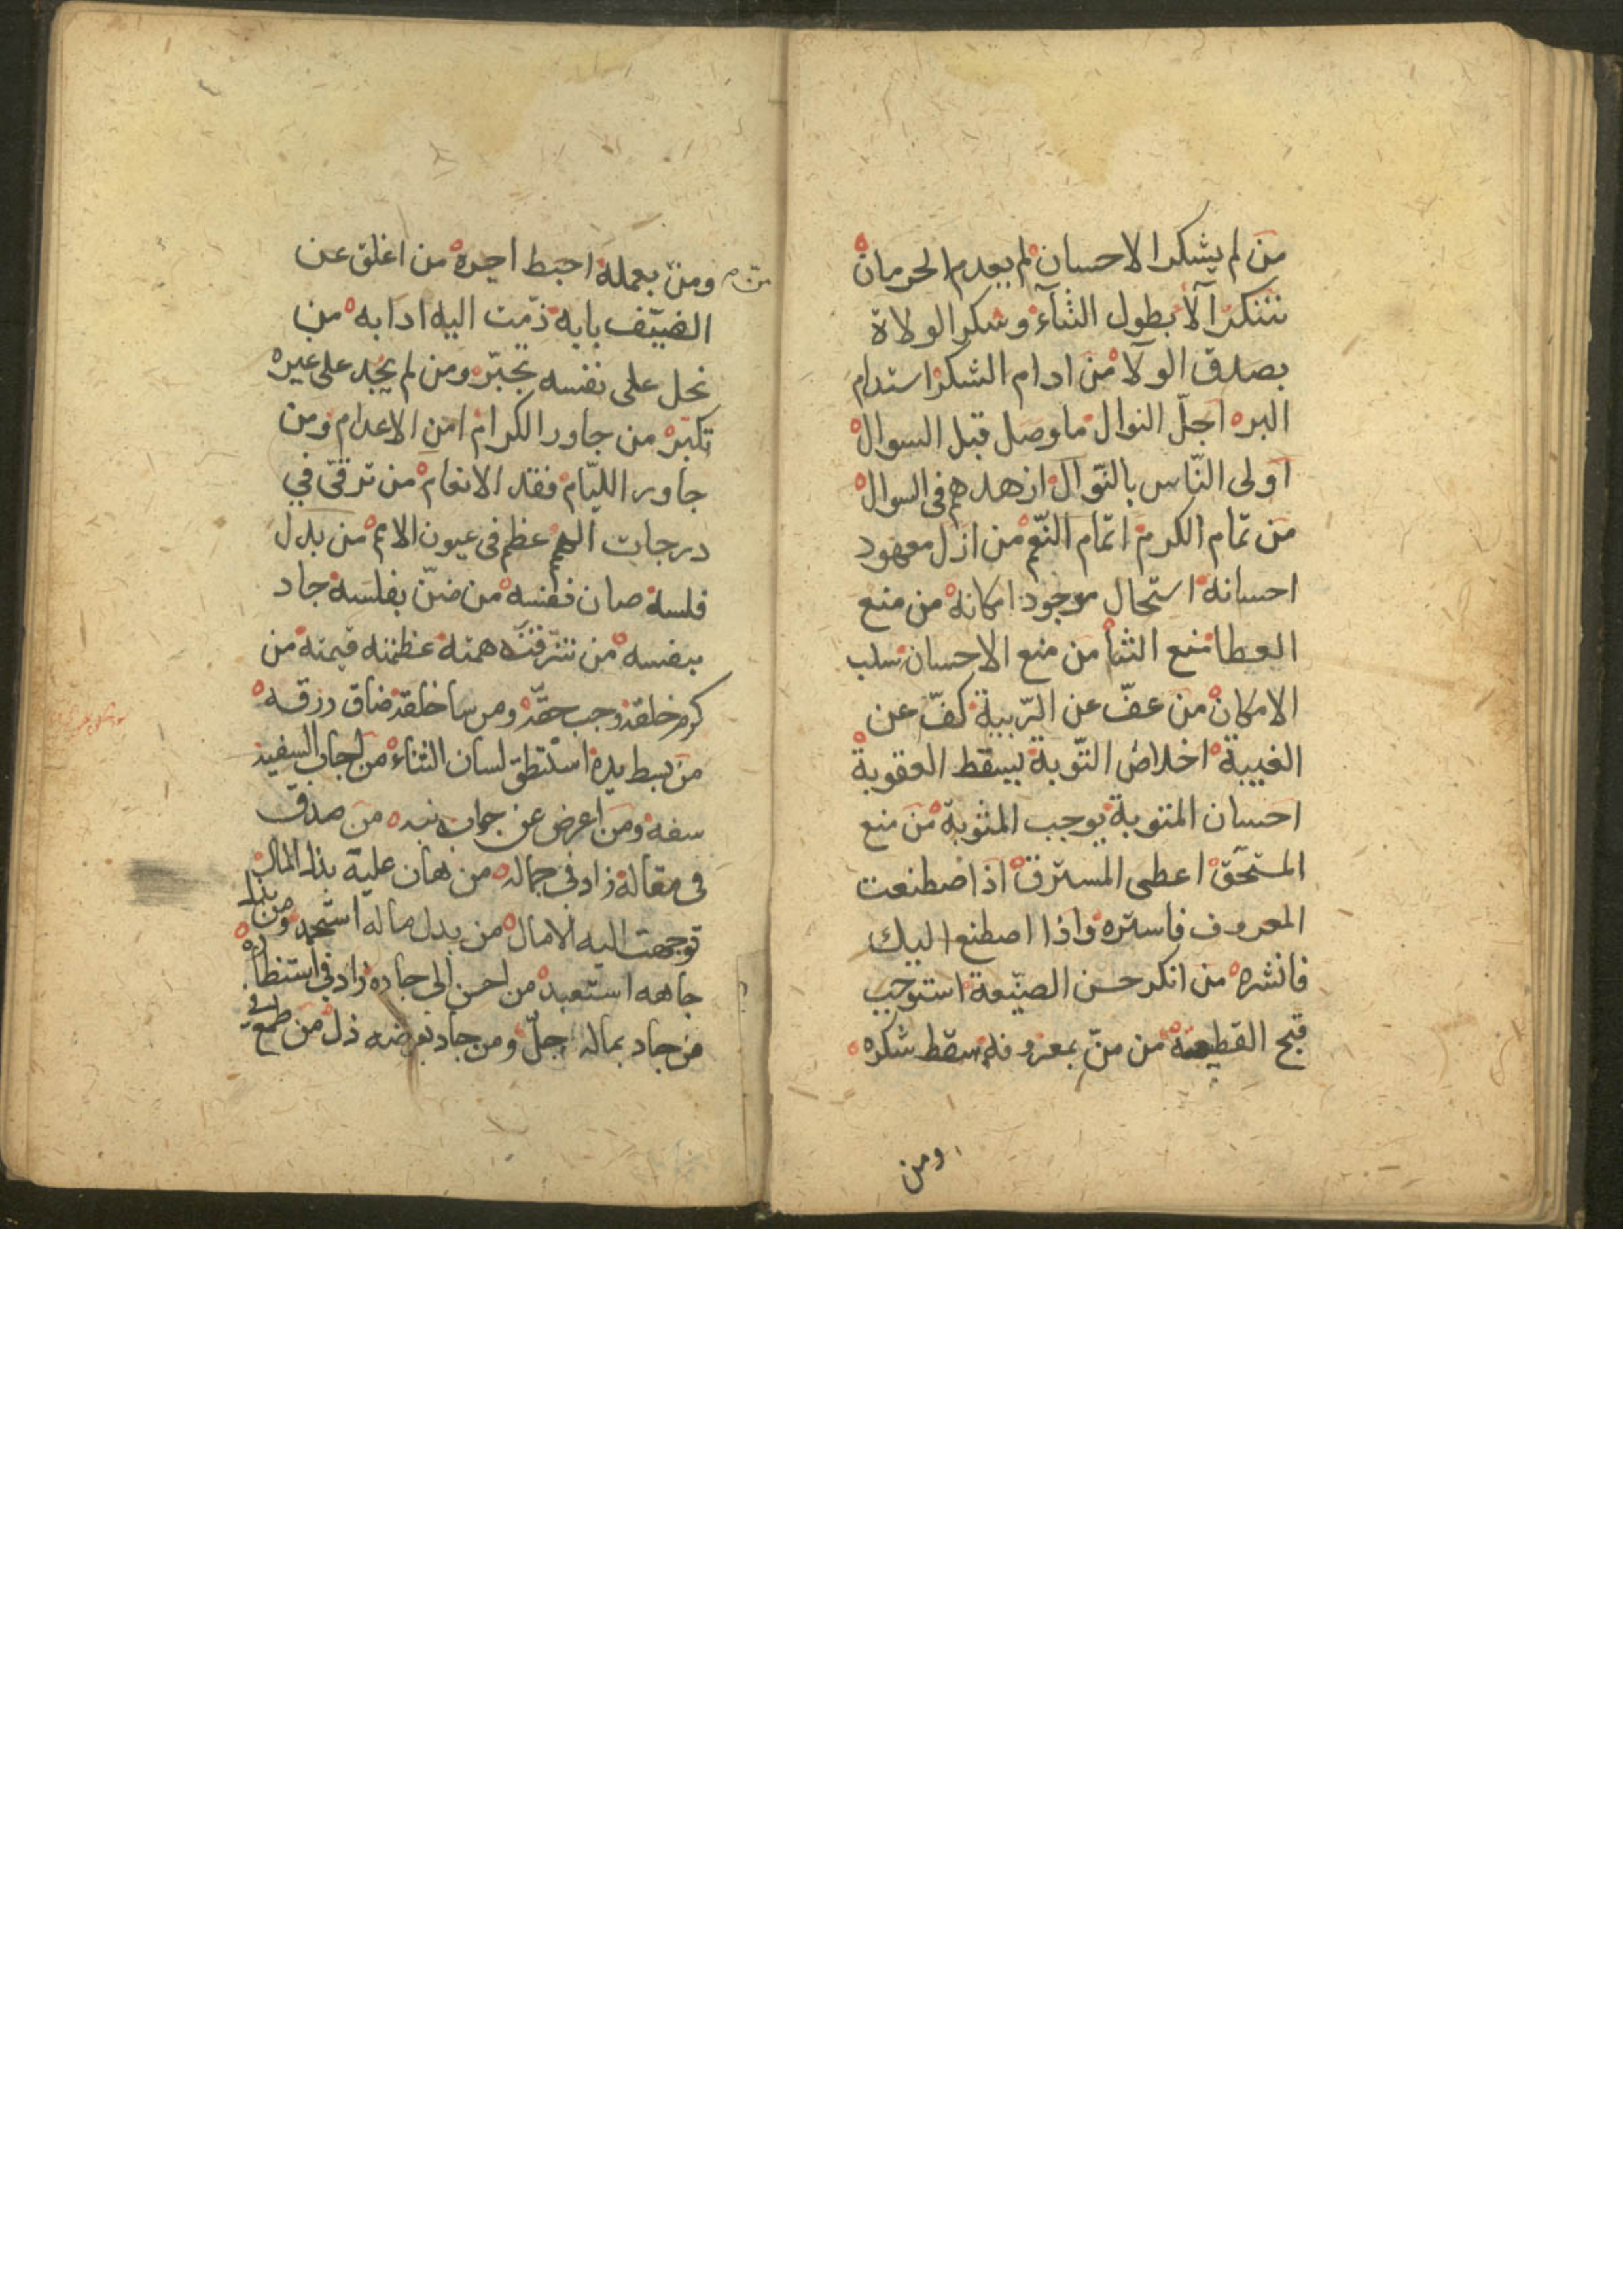 من لم يشكر الاحسان لم يعدم الحرمان
شكر الآلا بطول الثنآء وشكر الولاة
بصدق الولآ من ادام الشكر استدام
البر اجلّ النوال ما وصل قبل السوال
اولى النّاس بالنّوال ازهدهم فى السوال
من تمام الكرم اتمام النّعم من ازل معهود
احسانه استحال موجود امكانه من منع
العطا منع الثنا من منع الاحسان سلب
الامكان من عفّ عن الرّيبة كفّ عن
الغيبة اخلاص التّوبة يسقط العقوبة
احسان المتوبة يوجب المثوبة من منع
المستحق اعطى المسترق اذا اصطنعت
المعروف فاستره واذا اصطنع اليك
فانشره من انكر حسن الصنيعة استوجب
قبح القطيعة من منّ بمعروفه سقط شكره
ومن
ومن بعمله احبط اجره من اغلق عن
الضيف بابه ذمّت اليه ادابه من
نحل على نفسه تجبّر ومن لم يجد على غيره
تكبّر من جاور الكرام امن الاعدام ومن
جاور الليّام فقد الانعام من ترقى في
درجات الهمم عظم فى عيون الامم من بذل
فلسه صان نفسه من ضنّ بفلسه جاد
بنفسه من شرفت همته عظمته قيمته من
كرم خلقه وجب حقّه ومن سا خلقه ضاق رزقه
من بسط يده استنطق لسان الثناء من اجاب السفيه
سفه ومن اعرض عن جواب نبه من صدق
فى مقاله زاد فى جماله من هان عليه بذل المال
توجهت اليه الامال من بذل ماله استحمد ومن بذل
جاهه استعبد من احسن الى جاره زاد فى استظهاره
من جاد بماله جلّ ومن جاد بعرضه ذل من طمع